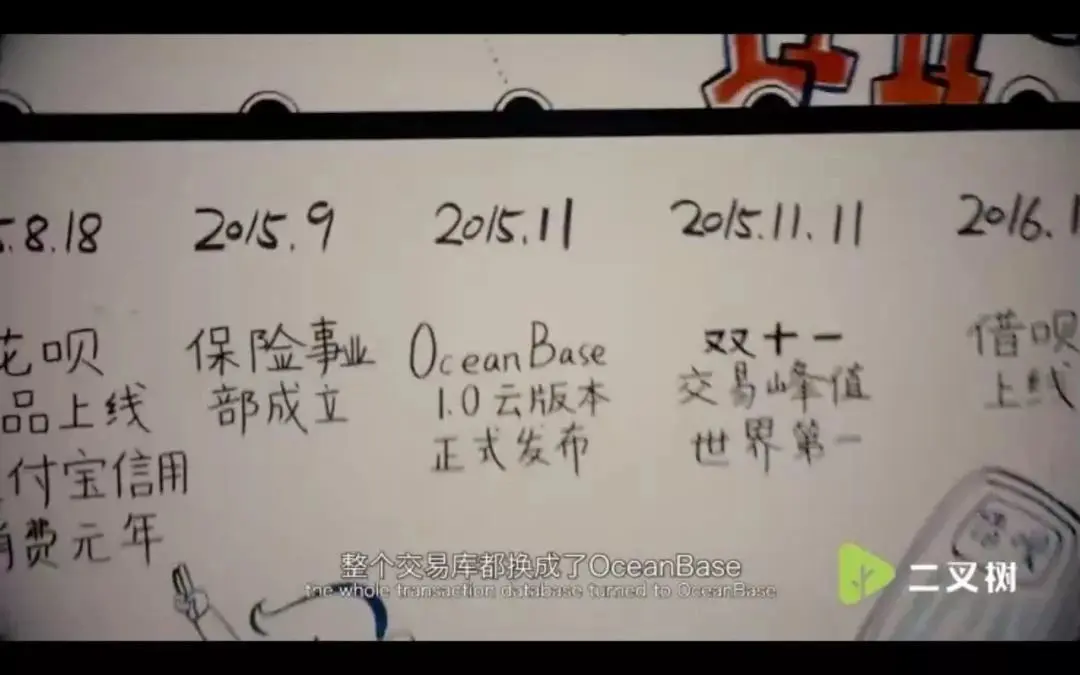 5.8.18
花呗
品上线
付宝信用
消费元年
2015.9
保险事业
部成立
2015.11
OceanBase
1.0云版本
正式发布
2015.11.11
双十一
交易峰值
世界第一
2016.1
借呗
上线
整个交易库都换成了OceanBase
the whole transaction database turned to OceanBase
二叉树